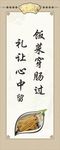 饭菜穿肠过
礼让心中留